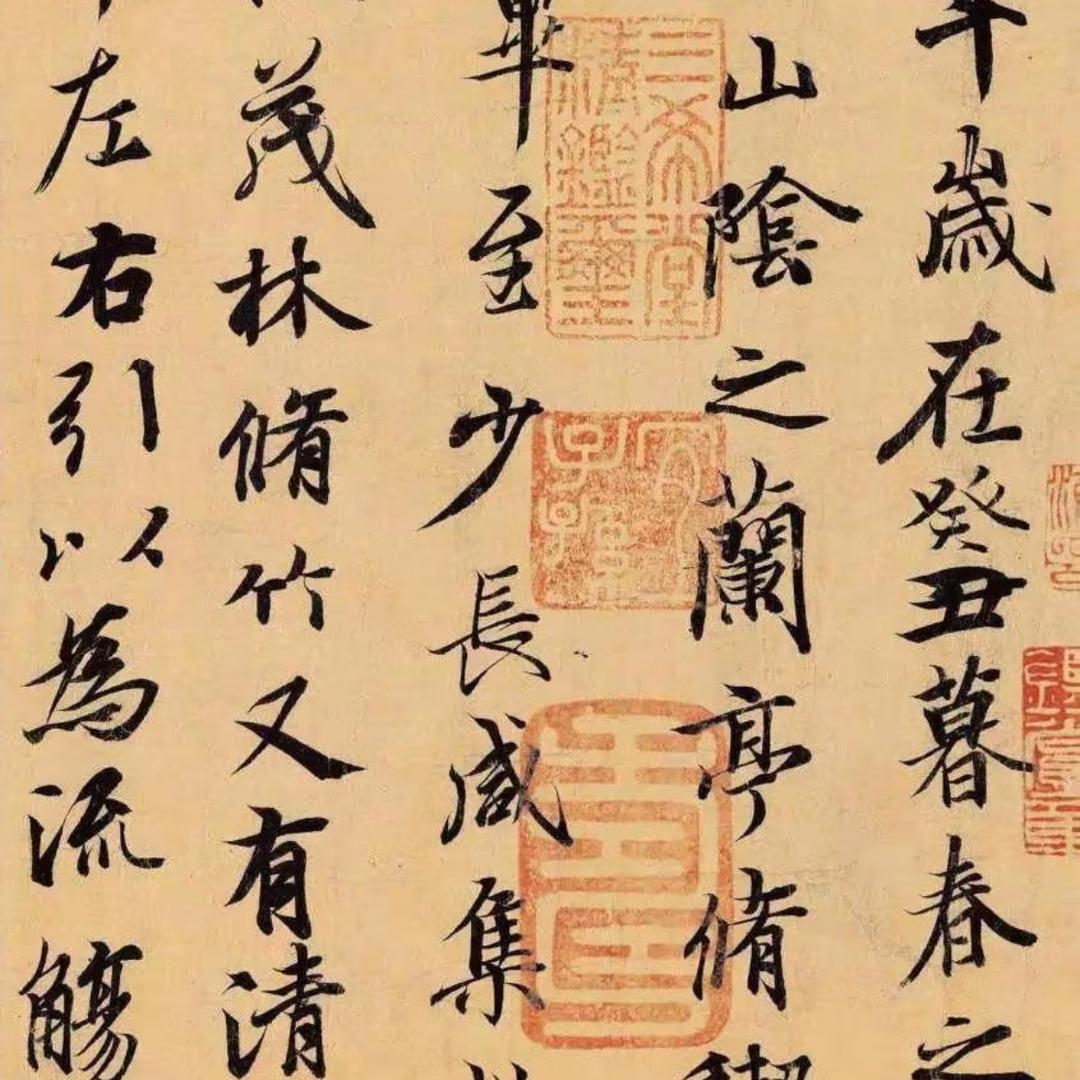 年歲在癸丑暮春之
山陰之蘭亭脩禊
畢至少長咸集
茂林脩竹又有清
左右引以為流觴
三希堂
精鑑璽
宜
子孫